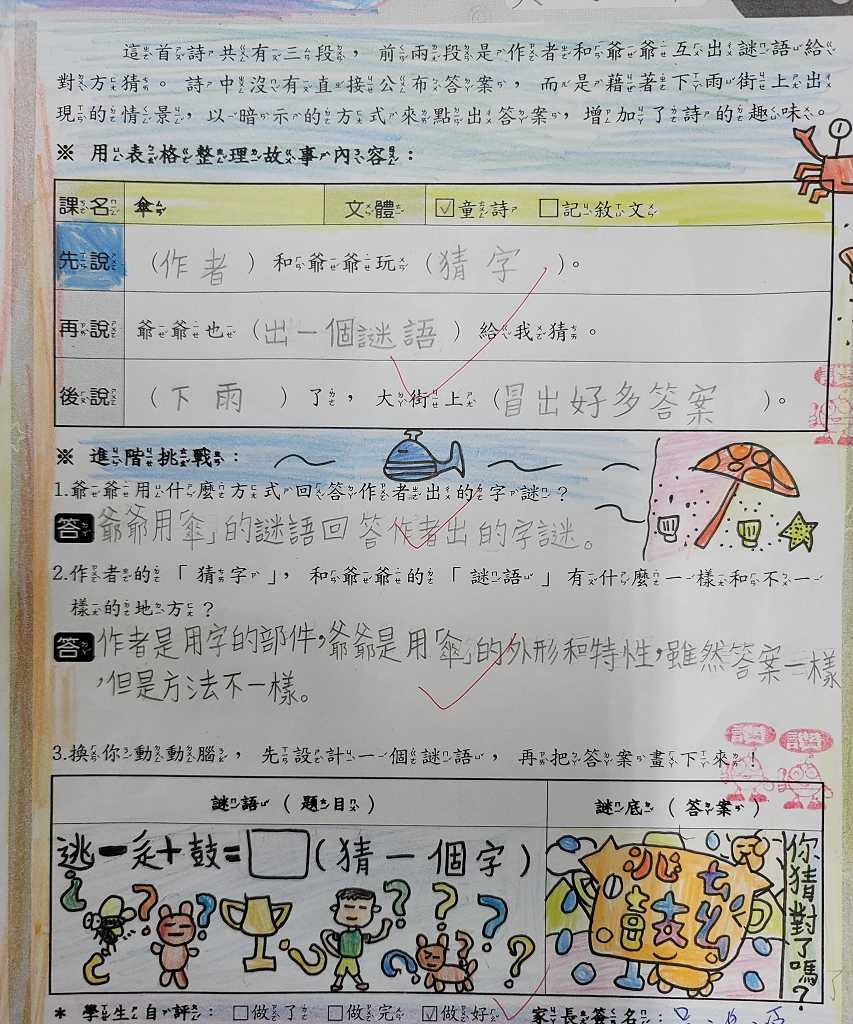 這首詩共有三段,前兩段是作者和爺爺互出謎語給
對方猜。詩中沒有直接公布答案,而是藉著下雨街上出
現的情景,以暗示的方式來點出答案,增加了詩的趣味。
※ 用表格整理故事內容:
課名 傘 文體 ☑童詩 □記敘文
先說 (作者)和爺爺玩(猜字)。
再說 爺爺也(出一個謎語)給我猜。
後說 (下雨)了,大街上(冒出好多答案)。
※ 進階挑戰:
1.爺爺用什麼方式回答作者出的字謎?
答 爺爺用「傘」的謎語回答作者出的字謎。
2.作者的「猜字」,和爺爺的「謎語」有什麼一樣和不一
樣的地方?
答 作者是用字的部件,爺爺是用「傘」的外形和特性,雖然答案一樣
,但是方法不一樣。
3.換你動動腦,先設計一個謎語,再把答案畫下來!
謎語(題目) 謎底(答案)
逃一辵+鼓=□(猜一個字)
你猜對了嗎?
* 學生自評: □做了 □做完 ☑做好 家長簽名: